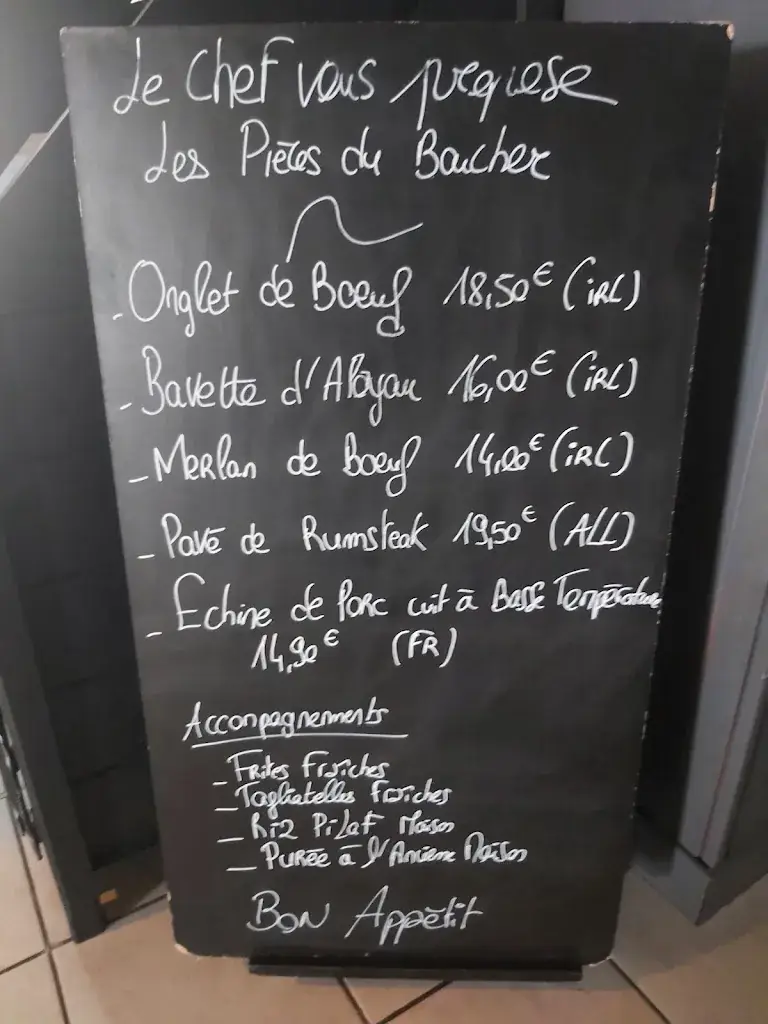 Le Chef vous propose
Les Pièces du Boucher
- Onglet de Boeuf 18,50€ (iRL)
- Bavette d'Aloyau 16,00€ (iRL)
- Merlan de Boeuf 14,00€ (iRL)
- Pavé de Rumsteak 19,50€ (ALL)
- Echine de Porc cuit à Basse Température
14,90€ (FR)
Accompagnements
- Frites Fraîches
- Tagliatelles fraîches
- Riz Pilaf Maison
- Purée à l'Ancienne Maison
BON Appétit